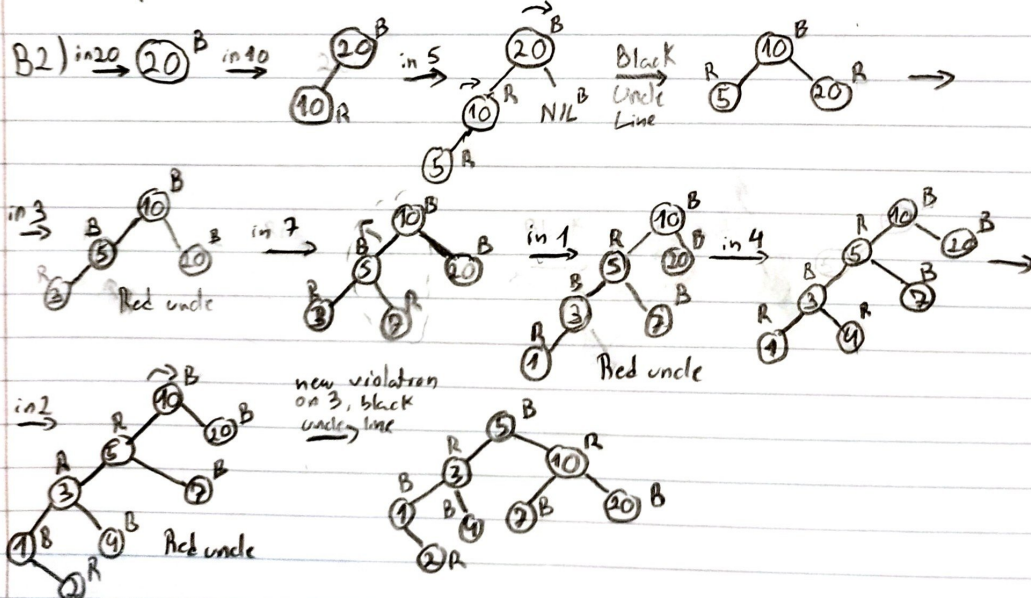 B2) in20 → 20 B in 10 → 20 B 10 R in 5 → 20 B 10 R NIL B 5 R Black Uncle Line → 10 B 5 R 20 R →
in 3 → 10 B 5 B 20 B 3 R Red uncle in 7 → 10 B 5 B 20 B 3 R 7 R in 1 → 10 B 5 R 20 B 3 B 7 B 1 R Red uncle in 4 → 10 B 5 R 20 B 3 B 7 B 1 R 4 R →
in 2 → 10 B 5 R 20 B 3 R 7 B 1 B 4 B 2 R Red uncle new violation on 3, black uncle, line → 5 B 3 R 10 R 1 B 4 B 7 B 20 B 2 R